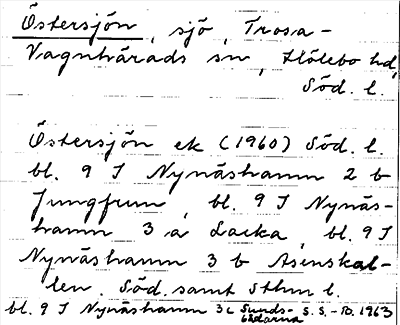 Östersjön, sjö, Trosa-
Vagnhärads sn, Hölebo hd,
Söd. l.
Östersjön ek (1960) Söd. l.
bl. 9 I Nynäshamn 2 b
Jungfrun, bl. 9 I Nynäs-
hamn 3 a Lacka, bl. 9 I
Nynäshamn 3 b Asenskal-
len. Söd. samt Sthm l.
bl. 9 I Nynäshamn 3c Sunds-
bådarna S.S.-10. 1963